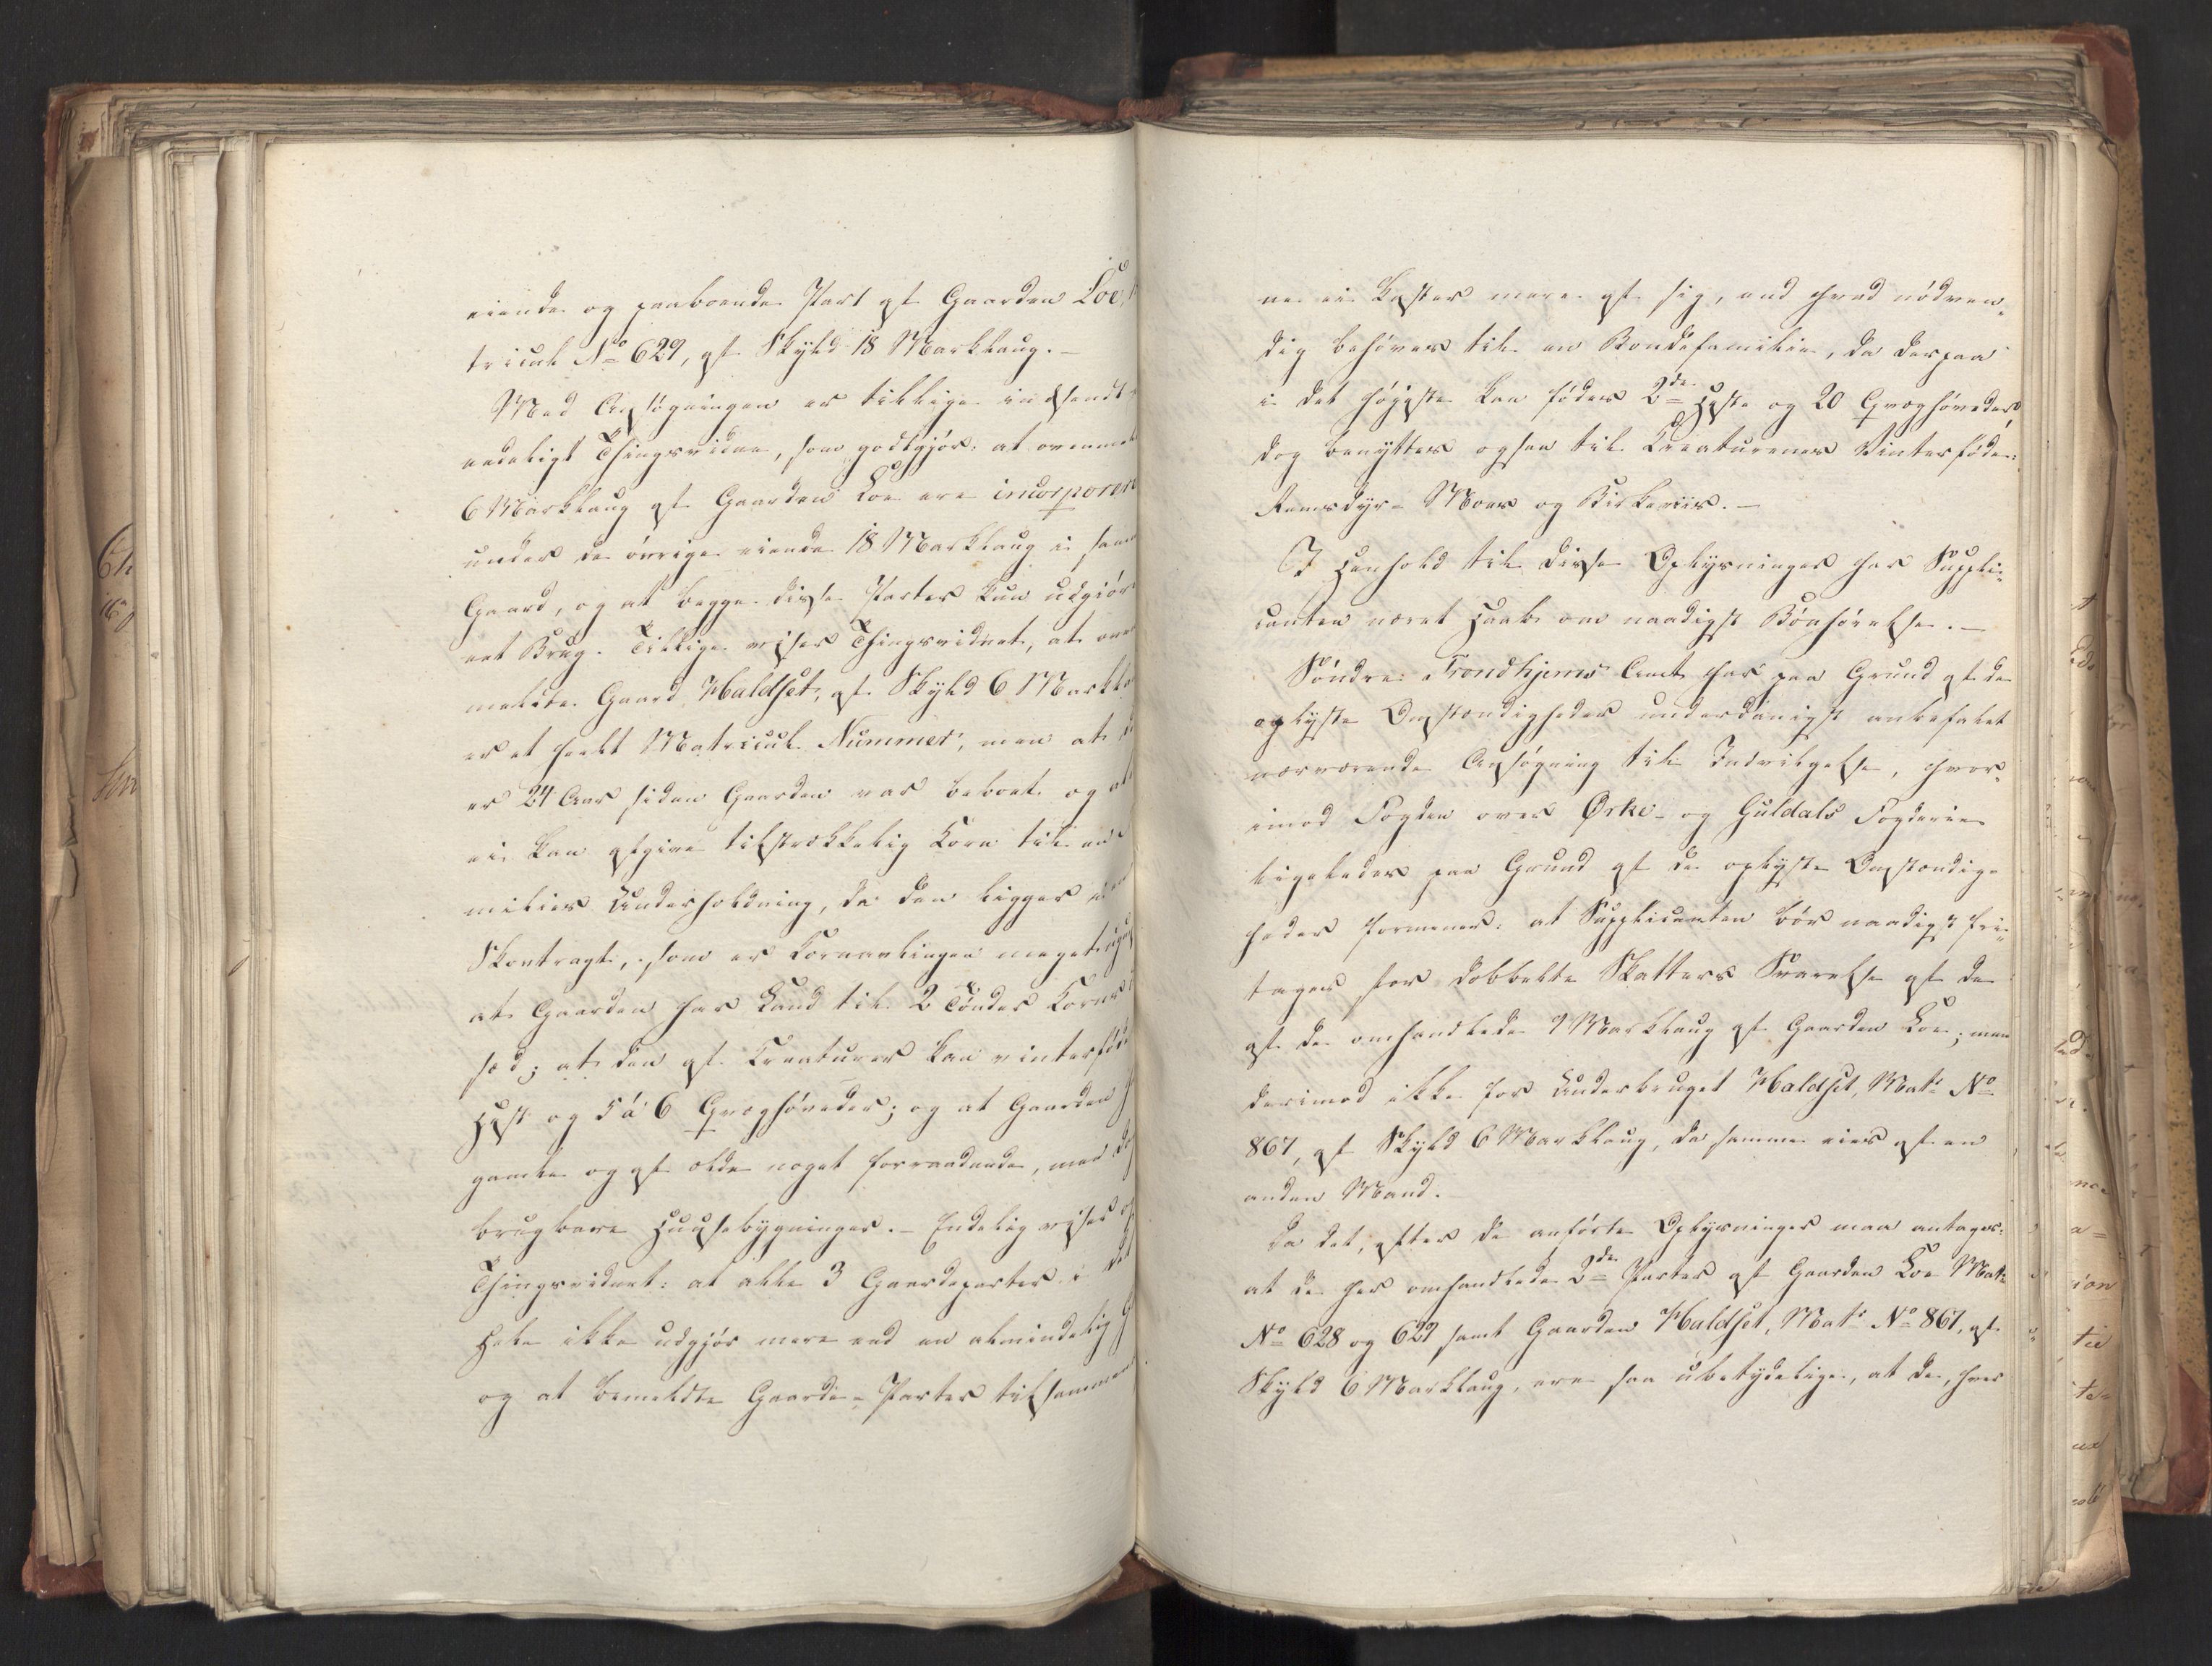 eiende og paaboende Part af Gaarden Loe,
tricul No 629, af Skyld 18 Marklaug.-
Med Ansøgningen er tillige indsendt
endeligt Thingsvidne, som godtgjør: at ovenmel
6 Marklaug af Gaarden Loe ere incorporere
under de øvrige eiende 18 Marklaug i sam
Gaard, og at begge disse Parter kun udgiør
eet Brug. Tillige viser Thingsvidnet, at oven
meldte Gaard Haldset, af Skyld 6 Markla
er et heelt Matricul Nummer, men at
er 24 Aar siden Gaarden var beboet og at
ei kan afgive tilstrækkelig Korn til en
milies Underholdning, da den ligger i en
Skovtragt, som er Kornavlingen meget
at Gaarden har Land til 2 Tønder Korns
sæd; at den af Creaturer kan vinterføde
Hest og 5 á 6 Qvæghøveder; og at Gaarden
gamle og af ælde noget forraadnede, men dog
brugbare Huusebygninger.- Endelig viser og
Thingsvidnet: at alle 3 Gaardeparter i det
Hele ikke udgjør mere end en almindelig
og at bemeldte Gaarde-Parter tilsammen
ne ei kaster mere af sig, end hvad nødven-
dig behøves til en Bondefamilie, da derpaa
i det høyeste kan fødes 2de Heste og 20 Qvæghøveder,
dog benyttes ogsaa til Creaturenes Vinterføde:
Reensdyr- Moes og Birkeriis.-
I Henhold til disse Oplysninger har Suppli-
canten været Haab om naadigst Bønhørelse.-
Søndre Trondhjems Amt har paa Grund af de
oplyste Omstændigheder underdanigst anbefalet
nærværende Ansøgning til Indvilgelse, hvor-
imod Fogden over Ørke- og Guldals Fogderier
ligeledes paa Grund af de oplyste Omstændig-
heder formener: at Supplicanten bør naadigst fri-
tages for dobbelte Skatters Svarelse af de
af de omhandlede Marklaug af Gaarden Loe; men
derimod ikke for Underbruget Haldset, Matr No
867, af Skyld 6 Marklaug, da samme eies af en
anden Mand.
Da det, efter de anførte Oplysninger maa antages:
at de her omhandlede 2de Parter af Gaarden Loe Matr
No 628 og 629 samt Gaarden Haldset, Matr No 867, af
Skyld 6 Marklaug, ere saa ubetydelige, at de, hver